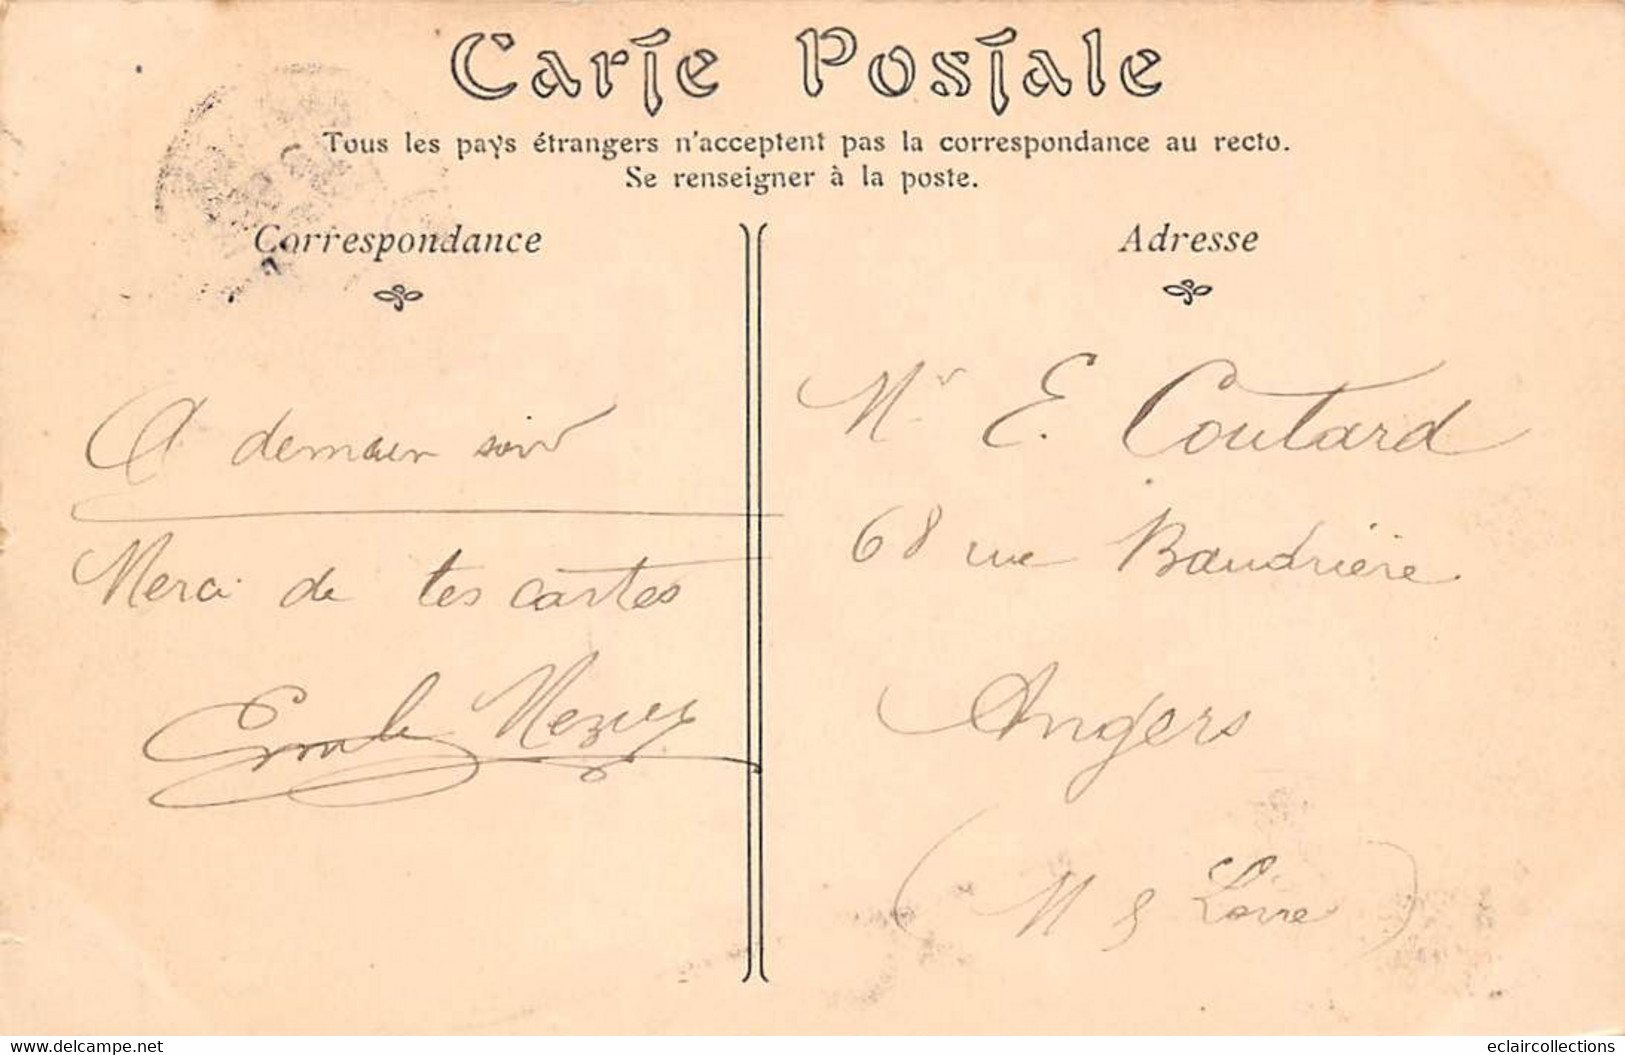 Carte Postale
Tous les pays étrangers n'acceptent pas la correspondance au recto.
Se renseigner à la poste.
Correspondance
Adresse
A demain soir
Merci de tes cartes
Emile
Mr E. Coutard
68 rue Baudrière
Angers
(M & Loire)
delcampe.net
eclaircollections